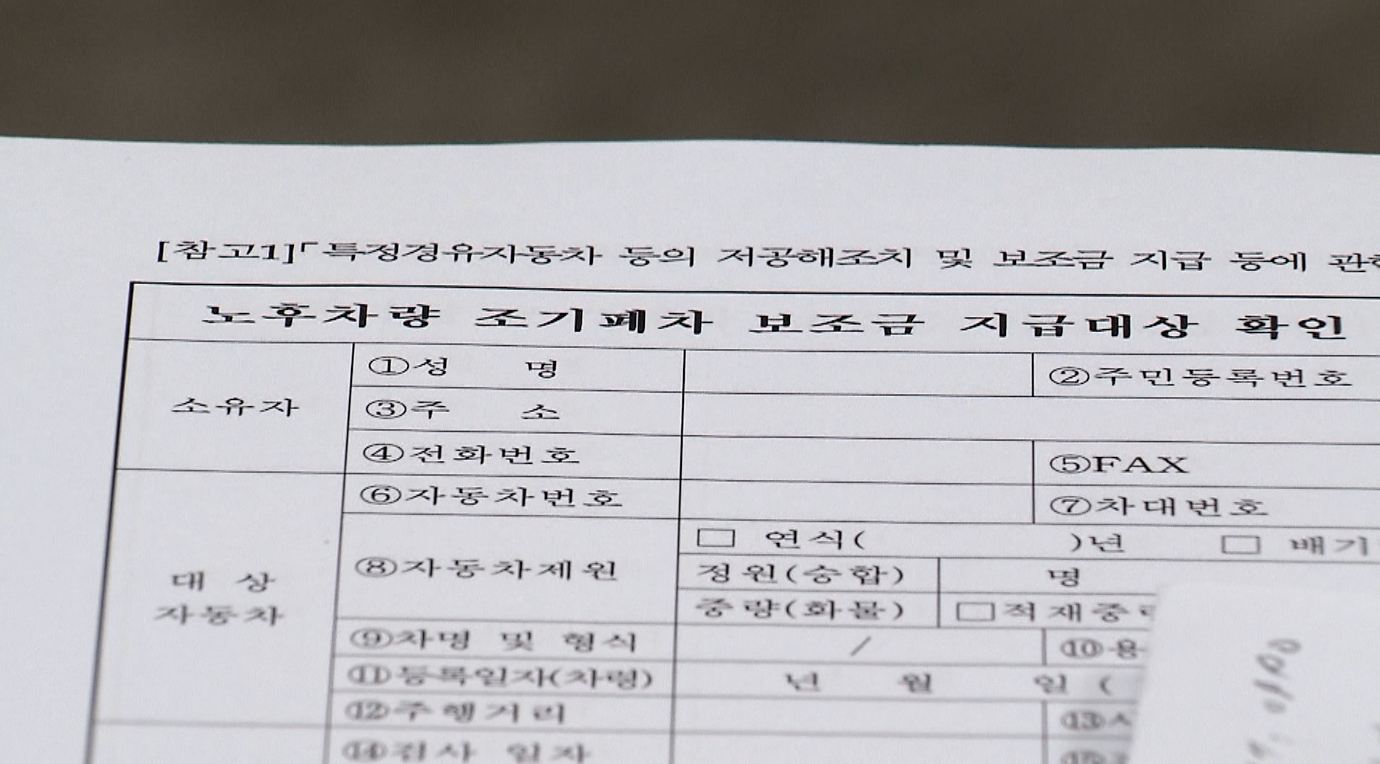 [참고1]「특정경유자동차 등의 저공해조치 및 보조금 지급 등에
노후차량 조기폐차 보조금 지급대상 확인
소유자
①성 명
②주민등록번호
③주 소
④전화번호
⑤FAX
대 상
자동차
⑥자동차번호
⑦차대번호
⑧자동차제원
□ 연식( )년 □ 배기
정원(승합) 명
중량(화물) □적재중
⑨차명 및 형식 /
⑩용
⑪등록일자(차령) 년 월 일 (
⑫주행거리
⑬
⑭검사 일자